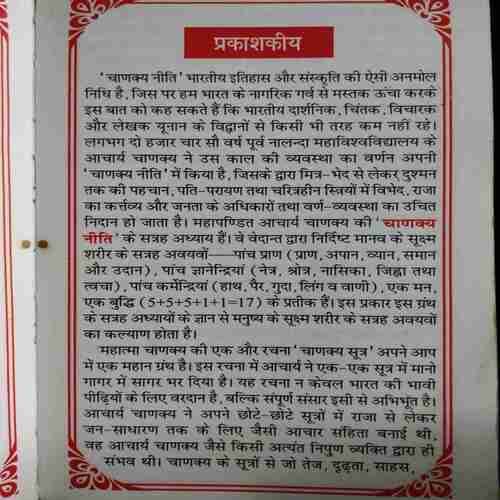 प्रकाशकीय
'चाणक्य नीति' भारतीय इतिहास और संस्कृति की ऐसी अनमोल
निधि है, जिस पर हम भारत के नागरिक गर्व से मस्तक ऊंचा करके
इस बात को कह सकते हैं कि भारतीय दार्शनिक, चिंतक, विचारक
और लेखक यूनान के विद्वानों से किसी भी तरह कम नहीं रहे।
लगभग दो हजार चार सौ वर्ष पूर्व नालन्दा महाविश्वविद्यालय के
आचार्य चाणक्य ने उस काल की व्यवस्था का वर्णन अपनी
'चाणक्य नीति' में किया है, जिसके द्वारा मित्र-भेद से लेकर दुश्मन
तक की पहचान, पति-परायण तथा चरित्रहीन स्त्रियों में विभेद, राजा
का कर्त्तव्य और जनता के अधिकारों तथा वर्ण-व्यवस्था का उचित
निदान हो जाता है। महापण्डित आचार्य चाणक्य की 'चाणक्य
नीति' के सत्रह अध्याय हैं। वे वेदान्त द्वारा निर्दिष्ट मानव के सूक्ष्म
शरीर के सत्रह अवयवों—पांच प्राण (प्राण, अपान, व्यान, समान
और उदान), पांच ज्ञानेन्द्रियां (नेत्र, श्रोत्र, नासिका, जिह्वा तथा
त्वचा), पांच कर्मेन्द्रियां (हाथ, पैर, गुदा, लिंग व वाणी), एक मन,
एक बुद्धि (5+5+5+1+1=17) के प्रतीक हैं। इस प्रकार इस ग्रंथ
के सत्रह अध्यायों के ज्ञान से मनुष्य के सूक्ष्म शरीर के सत्रह अवयवों
का कल्याण होता है।
महात्मा चाणक्य की एक और रचना 'चाणक्य सूत्र' अपने आप
में एक महान ग्रंथ है। इस रचना में आचार्य ने एक-एक सूत्र में मानो
गागर में सागर भर दिया है। यह रचना न केवल भारत की भावी
पीढ़ियों के लिए वरदान है, बल्कि संपूर्ण संसार इसी से अभिभूत है।
आचार्य चाणक्य ने अपने छोटे-छोटे सूत्रों में राजा से लेकर
जन-साधारण तक के लिए जैसी आचार संहिता बनाई थी,
वह आचार्य चाणक्य जैसे किसी अत्यंत निपुण व्यक्ति द्वारा ही
संभव थी। चाणक्य के सूत्रों से जो तेज, दृढ़ता, साहस,